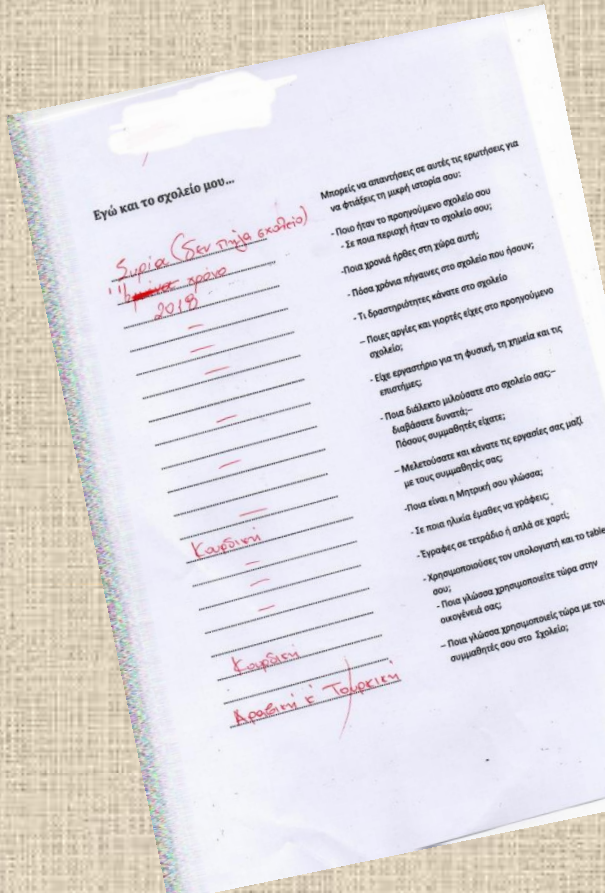 Εγώ και το σχολείο μου...
Συρία (δεν πήγα σχολείο)
χρόνο
2018
—
—
—
—
—
—
Κουρδική
—
—
—
Κουρδική
Αραβική κ Τουρκική
Μπορείς να απαντήσεις σε αυτές τις ερωτήσεις για
να φτιάξεις τη μικρή ιστορία σου:
- Ποιο ήταν το προηγούμενο σχολείο σου
- Σε ποια περιοχή ήταν το σχολείο σου;
-Ποια χρονιά ήρθες στη χώρα αυτή;
- Πόσα χρόνια πήγαινες στο σχολείο που ήσουν;
- Τι δραστηριότητες κάνατε στο σχολείο
– Ποιες αργίες και γιορτές είχες στο προηγούμενο
σχολείο;
- Είχε εργαστήριο για τη φυσική, τη χημεία και τις
επιστήμες;
- Ποια διάλεκτο μιλούσατε στο σχολείο σας;–
διαβάσατε δυνατά;–
Πόσους συμμαθητές είχατε;
– Μελετούσατε και κάνατε τις εργασίες σας μαζί
με τους συμμαθητές σας;
-Ποια είναι η Μητρική σου γλώσσα;
- Σε ποια ηλικία έμαθες να γράφεις;
- Έγραφες σε τετράδιο ή απλά σε χαρτί;
- Χρησιμοποιούσες τον υπολογιστή και το table
σου;
- Ποια γλώσσα χρησιμοποιείτε τώρα στην
οικογένειά σας;
– Ποια γλώσσα χρησιμοποιείς τώρα με του
συμμαθητές σου στο Σχολείο;